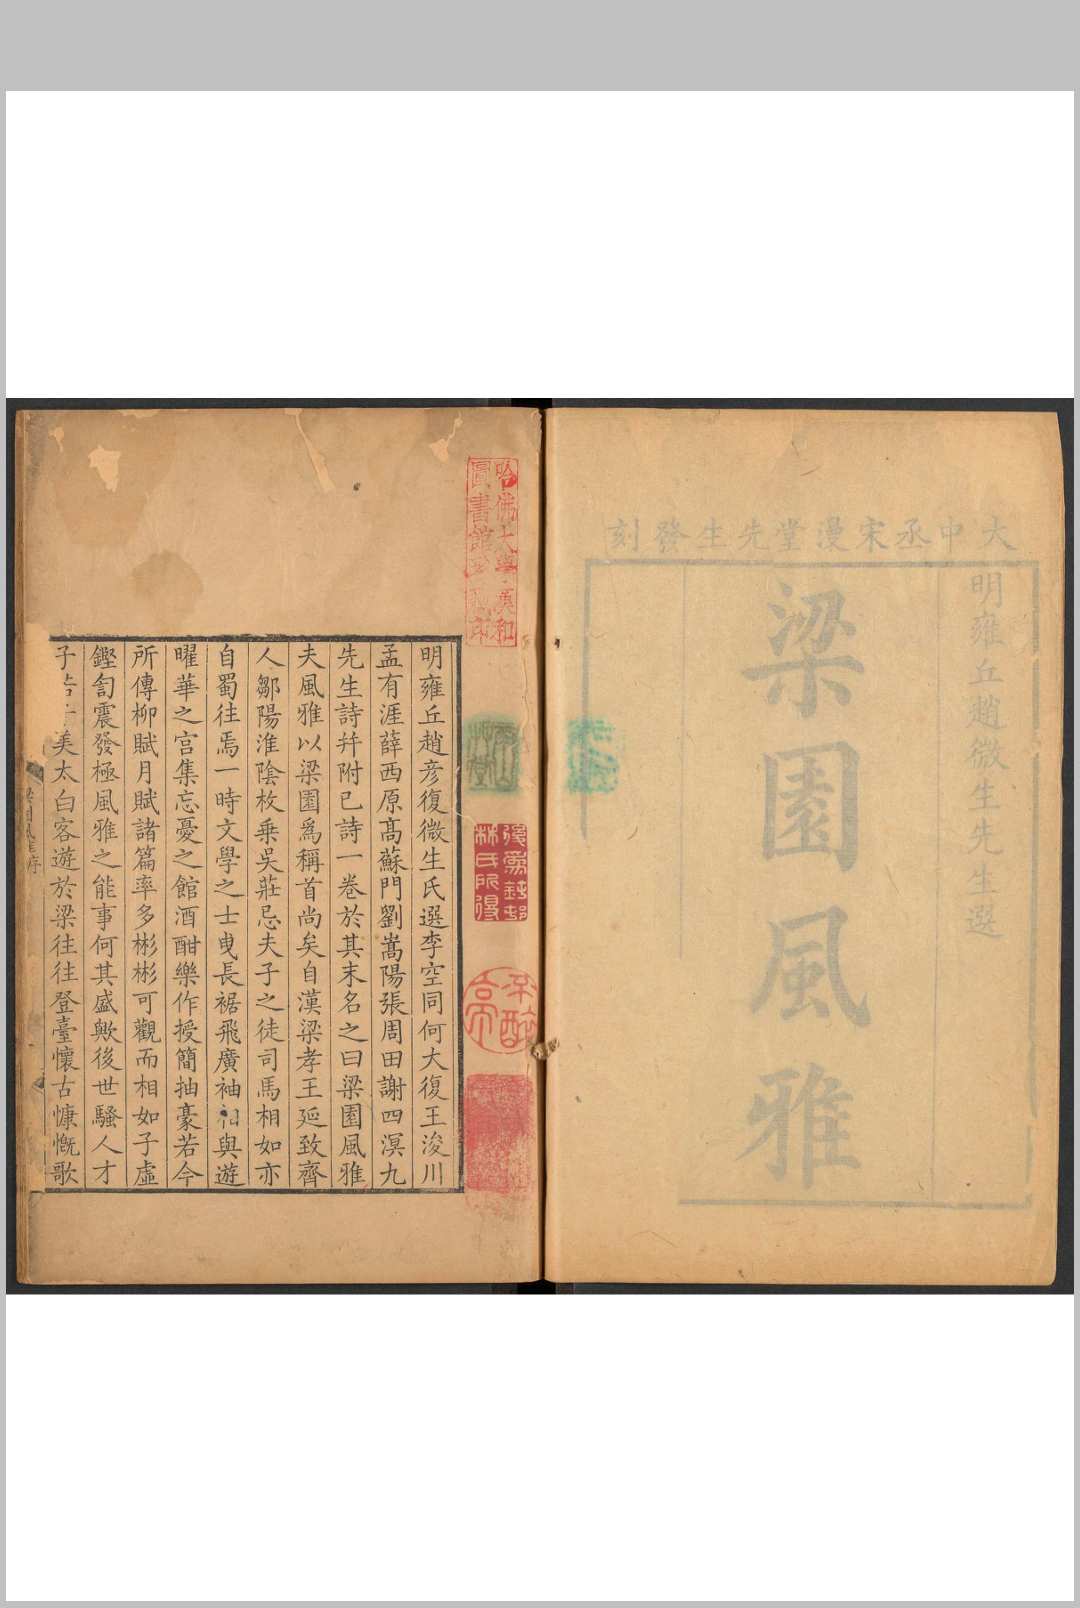 大中丞宋漫堂先生發刻
明雍丘趙微生先生選
梁園風雅
哈佛大學漢和
圖書館
明雍丘趙彦復微生氏選李空同何大復王浚川
孟有涯薛西原髙蘇門劉嵩陽張周田謝四溟九
先生詩并附已詩一卷於其末名之曰梁園風雅
夫風雅以梁園爲稱首尚矣自漢梁孝王延致齊
人鄒陽淮陰枚乗吳莊忌夫子之徒司馬相如亦
自蜀徃焉一時文學之士曵長裾飛廣袖相與遊
曜華之宫集忘憂之館酒酣樂作授簡抽毫若今
所傳柳賦月賦諸篇率多彬彬可觀而相如子虛
鏗訇震發極風雅之能事何其盛歟後世騷人才
子美太白客遊於梁往往登臺懷古慷慨歌